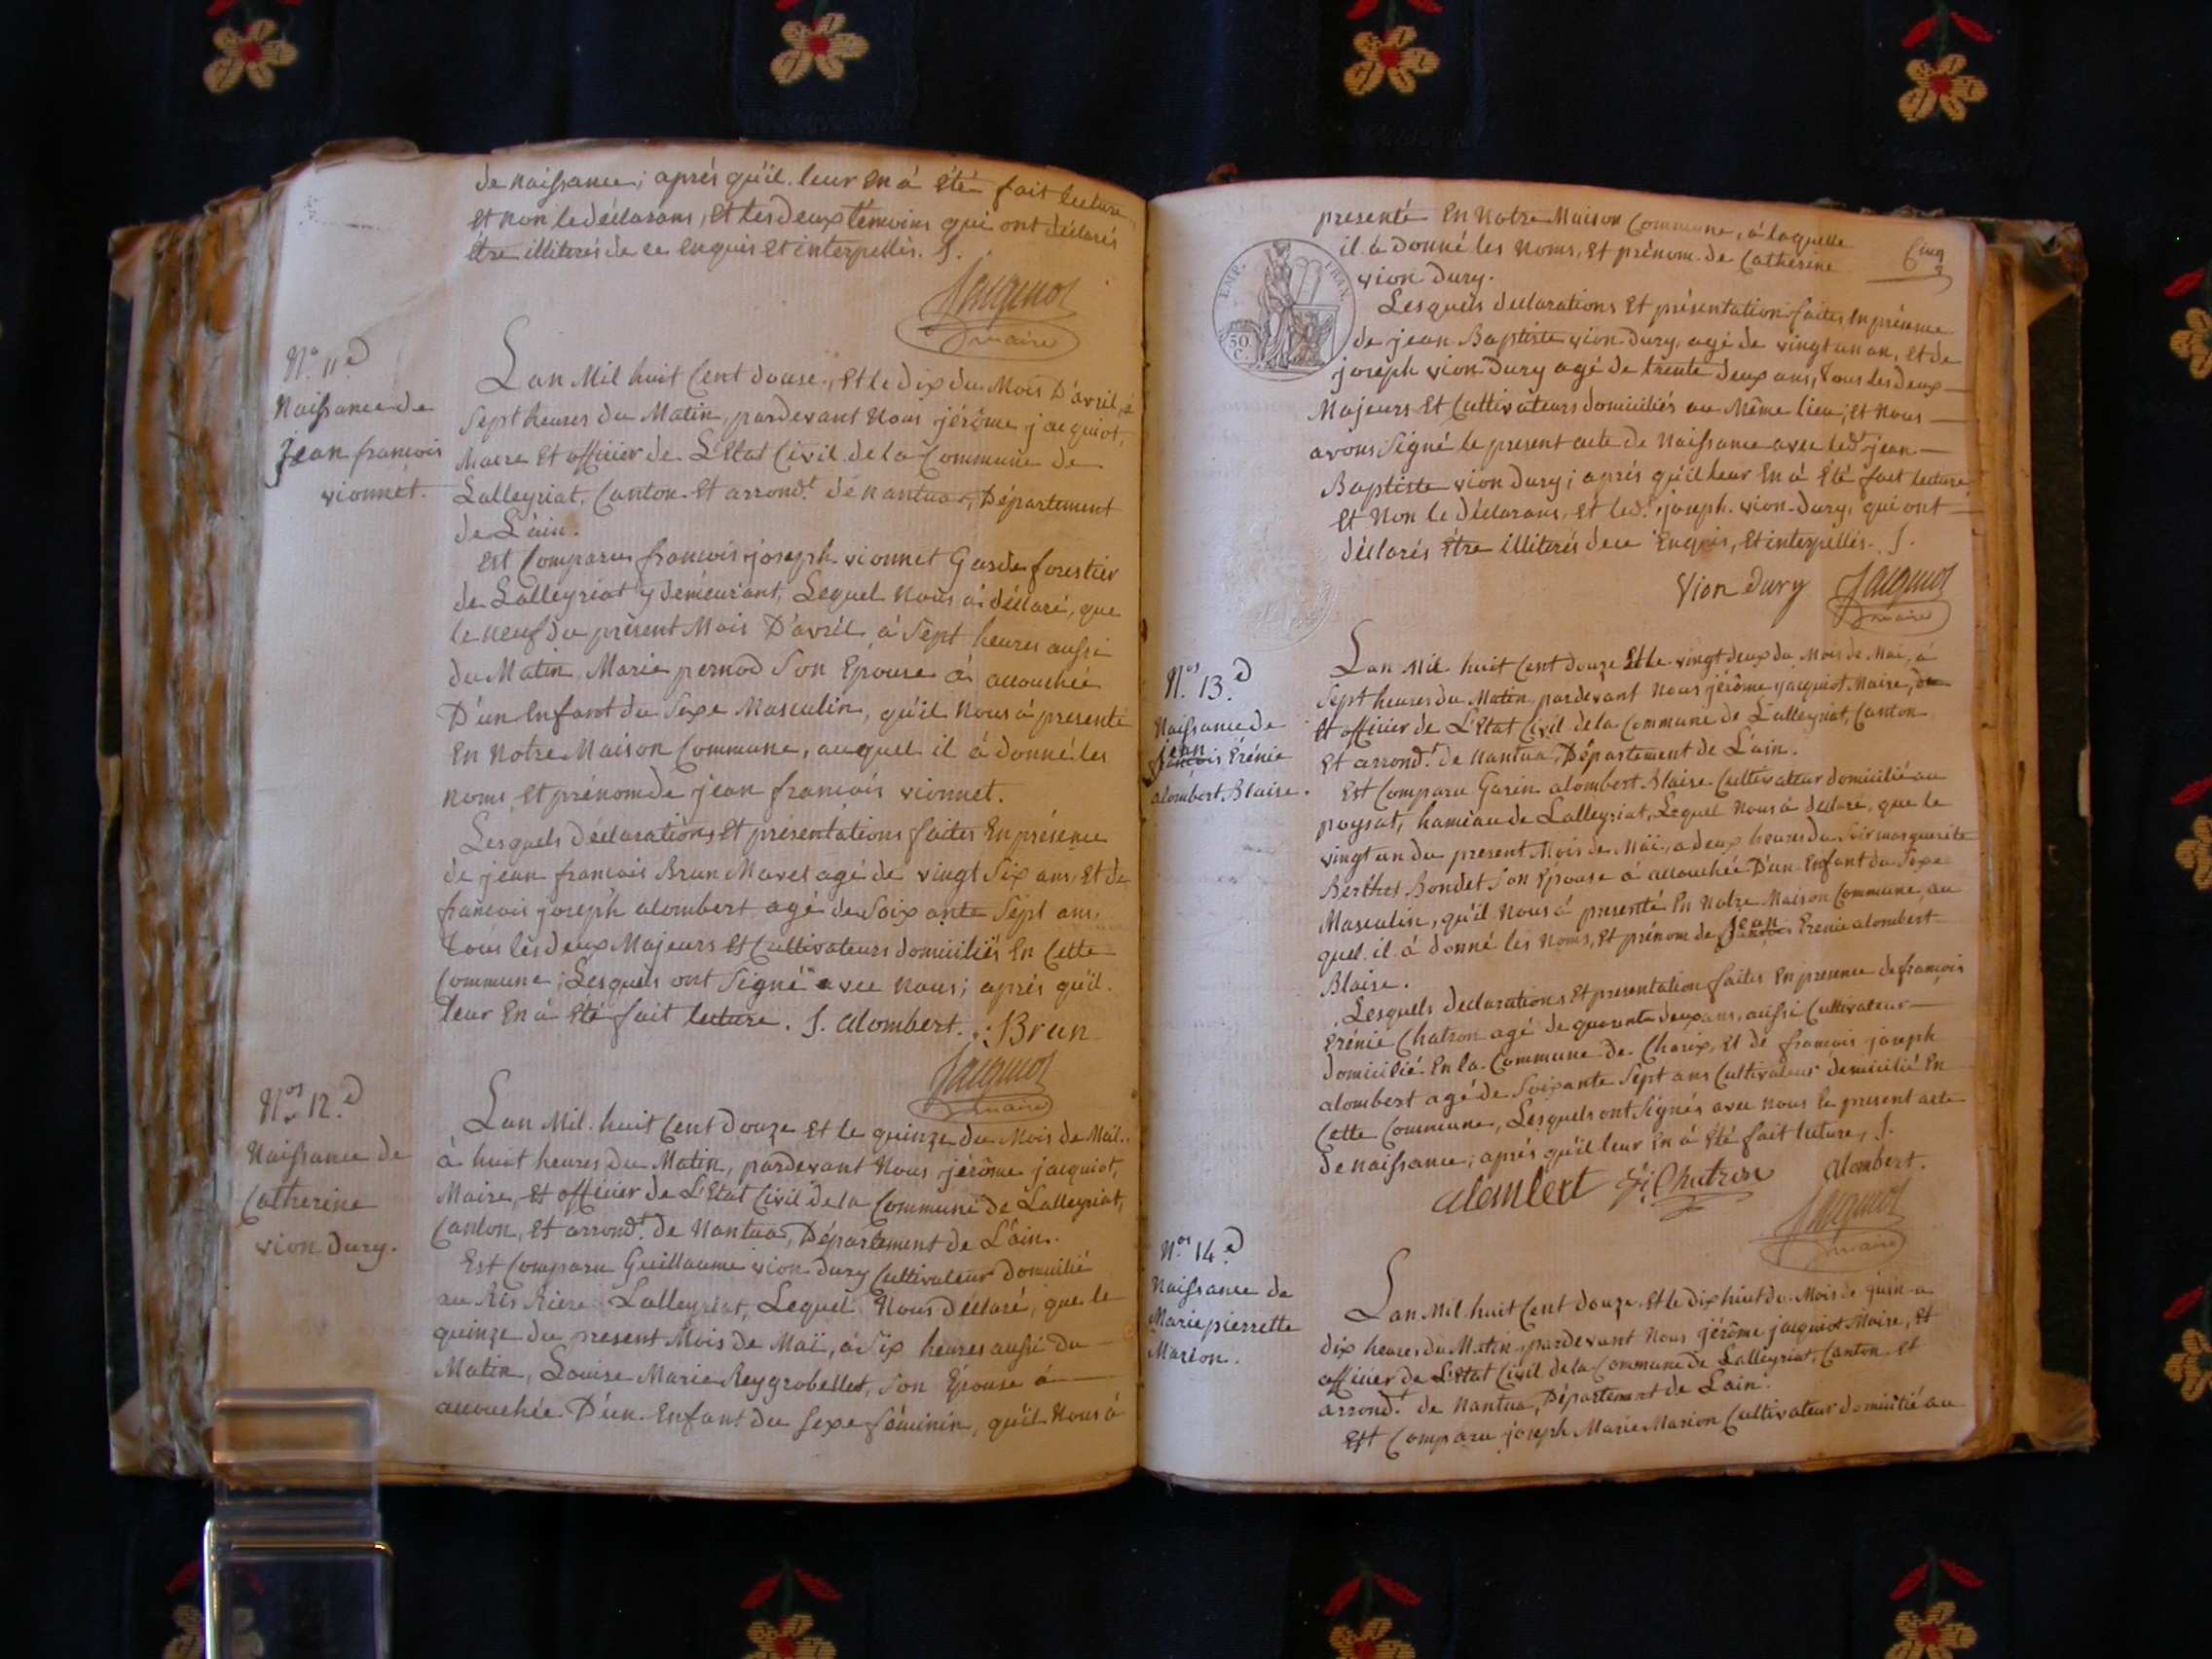 de naissance; aprés qu'il leur en á été fait lecture
et non le déclarans, et les deux témoins qui ont déclarés
être illiterés de ce enquis et interpellés. S.
Jacquiot
maire
N.º 11.e
Naissance de
jean francois
vionnet.
Lan Mil huit Cent douse, et le dix du Mois D'avril, á
Sept heures du Matin, pardevant Nous jérôme jacquiot,
Maire et officier de L'Etat Civil de la Commune de
Lalleyriat, Canton et arrond.t de Nantua, Département
de L'ain.
Est Comparu francois joseph vionnet Garde forestier
de Lalleyriat y demeurant, Lequel Nous á déclaré, que
le neuf du présent Mois D'avril á Sept heures aussi
du Matin, Marie pernod Son Épouse á accouchée
D'un Enfant du Sexe Masculin, qu'il Nous á presenté
En Notre Maison Commune, auquel il á donné les
noms et prénom de jean francois vionnet.
Lesquels déclarations et présentations faites En présence
de jean francois Brun Mavet agé de vingt Six ans, Et de
francois joseph alombert agé de Soixante Sept ans,
tous les deux Majeurs et Cultivateurs domiciliés En Cette
Commune; Lesquels ont Signé avec nous; aprés qu'il
leur En á été fait lecture. S. alombert. Brun
Jacquiot
maire
N.os 12.e
Naissance de
Catherine
vion dury.
Lan Mil huit Cent douze et le quinze du Mois de Mai
á huit heures du Matin, pardevant Nous jérôme jacquiot,
Maire, et officier de L'Etat Civil de la Commune de Lalleyriat,
Canton, et arrond.t de Nantua, Département de L'ain.
Est Comparu Guillaume vion dury Cultivateur domicilié
au Lalleyriat, Lequel Nous Déclaré, que le
quinze du present Mois de Maï, á Six heures aussi du
Matin, Louise Marie Reygrobellet, Son Épouse á
accouchée D'un Enfant du Sexe féminin, qu'il Nous á
Cinq
presenté En Notre Maison Commune, á laquelle
il á donné les noms, et prénom de Catherine
vion dury.
EMP. FRAN.
50
C.
Lesquels déclarations et présentation faites en présence
de jean Baptiste vion dury, agé de vingt un an, et de
joseph vion dury agé de trente deux ans, tous les deux
Majeurs et Cultivateurs domiciliés au Même lieu; et Nous
avons Signé le present acte de Naissance avec led.t jean
Baptiste vion dury; aprés qu'il leur En á Eté fait lecture
et Non le déclarans, et led.t joseph vion dury, qui ont
déclarés être illiterés de ce Enquis, Et interpellés. S.
Vion dury Jacquiot
maire
N.os 13.e
Naissance de
jean
francois Erénie
alombert Blaise.
Lan Mil huit Cent douze Et le vingt deux du Mois de Mai, á
Sept heures du Matin, pardevant Nous jérôme jacquiot Maire,
et officier de L'Etat Civil de la Commune de Lalleyriat, Canton
Et arrond.t de Nantua, Département de L'ain.
Est Comparu Garin alombert Blaise Cultivateur domicilié au
poysat, hameau de Lalleyriat, Lequel Nous á déclaré, que le
vingt un du present Mois de Maï, a deux heures du Soir marguerite
Berthet Bondet Son Epouse á accouchée D'un Enfant du Sexe
Masculin, qu'il Nous á presenté En Notre Maison Commune, au
quel il á donné les noms, et prénom de jean Erenie alombert
Blaise.
Lesquels declarations et presentation faites En presence de francois
Erénie Chatron agé de quarente deux ans, aussi Cultivateur
domicilié En la Commune de Charix, et de francois joseph
alombert agé de Soixante Sept ans Cultivateur domicilié En
Cette Commune, Lesquels ont Signés avec nous le present acte
de naissance; aprés qu'il leur En á Été fait lecture, S.
alombert Chatron alombert.
Jacquiot
maire
N.os 14.e
Naissance de
Marie pierrette
Marion.
Lan Mil huit Cent douze, Et le dix huit du Mois de juin a
dix heures du Matin, pardevant Nous jérôme jacquiot Maire, Et
officier de L'Etat Civil de la Commune de Lalleyriat, Canton et
arrond.t de Nantua, Département de L'ain.
Est Comparu joseph Marie Marion Cultivateur domicilié au